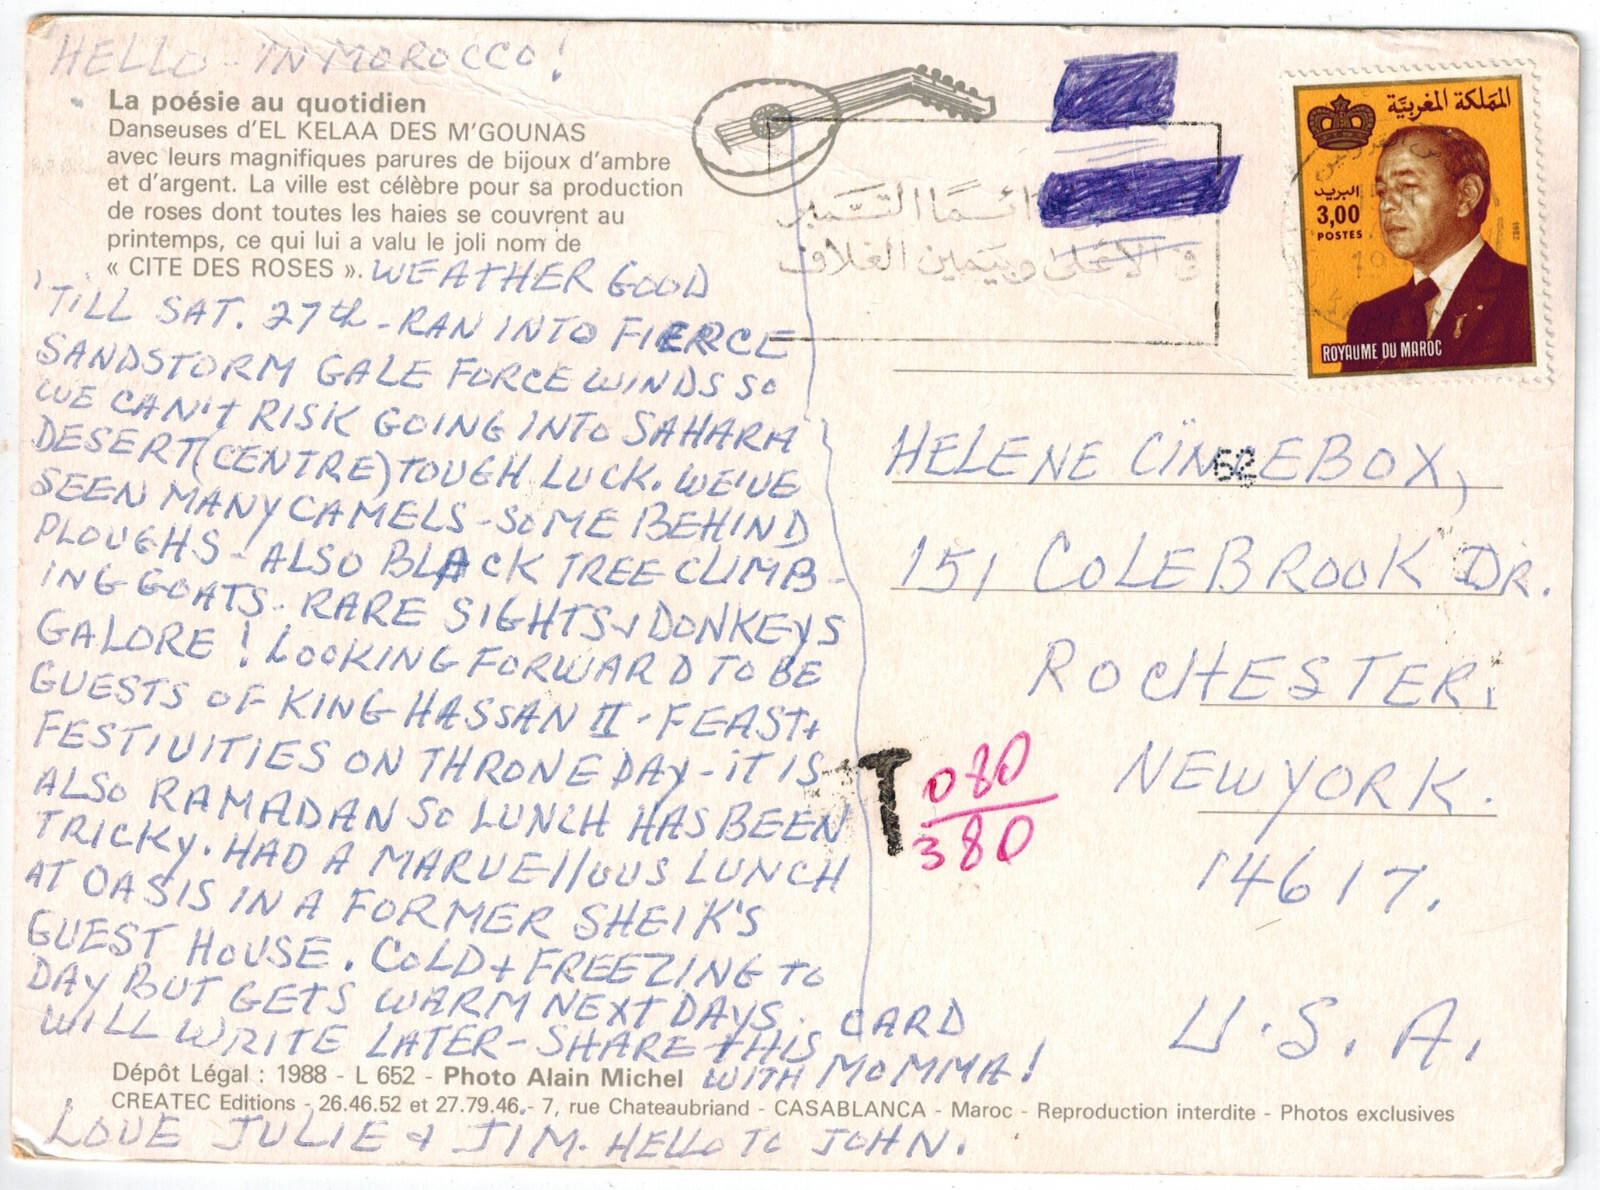 HELLO - IN MOROCCO!
La poésie au quotidien
Danseuses d'EL KELAA DES M'GOUNAS
avec leurs magnifiques parures de bijoux d'ambre
et d'argent. La ville est célèbre pour sa production
de roses dont toutes les haies se couvrent au
printemps, ce qui lui a valu le joli nom de
« CITE DES ROSES ».
WEATHER GOOD
'TILL SAT. 27th - RAN INTO FIERCE
SANDSTORM GALE FORCE WINDS SO
WE CAN'T RISK GOING INTO SAHARA
DESERT (CENTRE) TOUGH LUCK. WE'VE
SEEN MANY CAMELS - SOME BEHIND
PLOUGHS - ALSO BLACK TREE CLIMB-
ING GOATS - RARE SIGHTS & DONKEYS
GALORE! LOOKING FORWARD TO BE
GUESTS OF KING HASSAN II - FEAST +
FESTIVITIES ON THRONE DAY - IT IS
ALSO RAMADAN SO LUNCH HAS BEEN
TRICKY. HAD A MARVELLOUS LUNCH
AT OASIS IN A FORMER SHEIK'S
GUEST HOUSE. COLD + FREEZING TO
DAY BUT GETS WARM NEXT DAYS.
WILL WRITE LATER - SHARE THIS CARD
WITH MOMMA!
LOVE JULIE & JIM. HELLO TO JOHN.
Dépôt Légal : 1988 - L 652 - Photo Alain Michel
CREATEC Editions - 26.46.52 et 27.79.46. - 7, rue Chateaubriand - CASABLANCA - Maroc - Reproduction interdite - Photos exclusives
في الأعلى وبيمين الغلاف
المملكة المغربية
البريد
3,00
POSTES
1982
ROYAUME DU MAROC
HELENE
151 COLEBROOK DR.
ROCHESTER.
NEW YORK.
14617.
U.S.A.
T
080
380